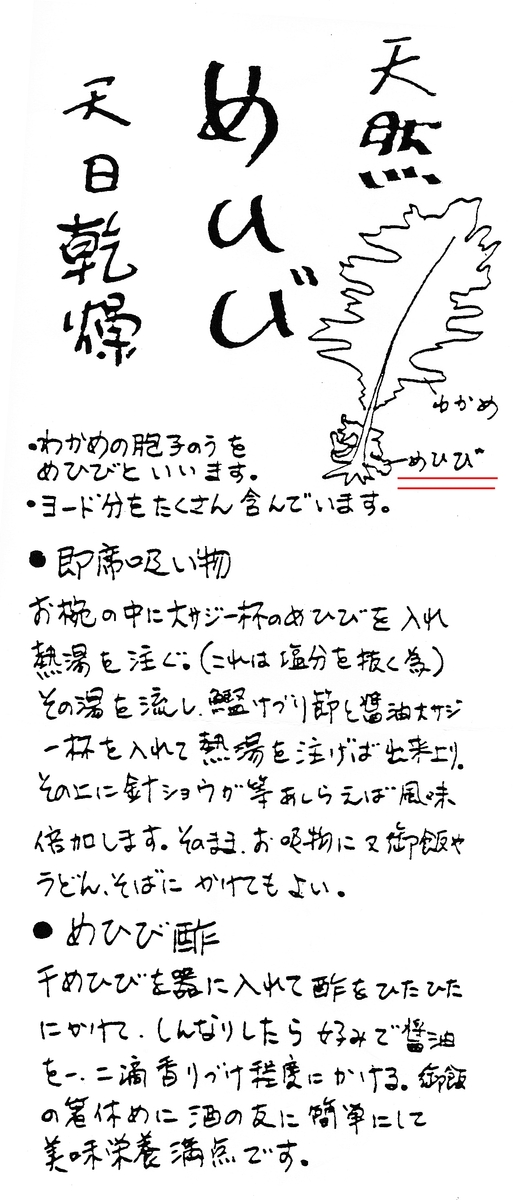 天然
めひび
天日乾燥
わかめ
めひび
・わかめの胞子のうを
めひびといいます。
・ヨード分をたくさん含んでいます。
●即席吸い物
お椀の中に大サジ一杯のめひびを入れ
熱湯を注ぐ。(これは塩分を抜く為)
その湯を流し、鰹けづり節と醤油大サジ
一杯を入れて熱湯を注げば出来上り。
その上に針ショウガ等あしらえば風味
倍加します。そのまま、お吸物に又御飯や
うどん、そばにかけてもよい。
●めひび酢
干めひびを器に入れて酢をひたひた
にかけて、しんなりしたら好みで醤油
を一、二滴香りづけ程度にかける。御飯
の箸休めに酒の友に簡単にして
美味栄養満点です。